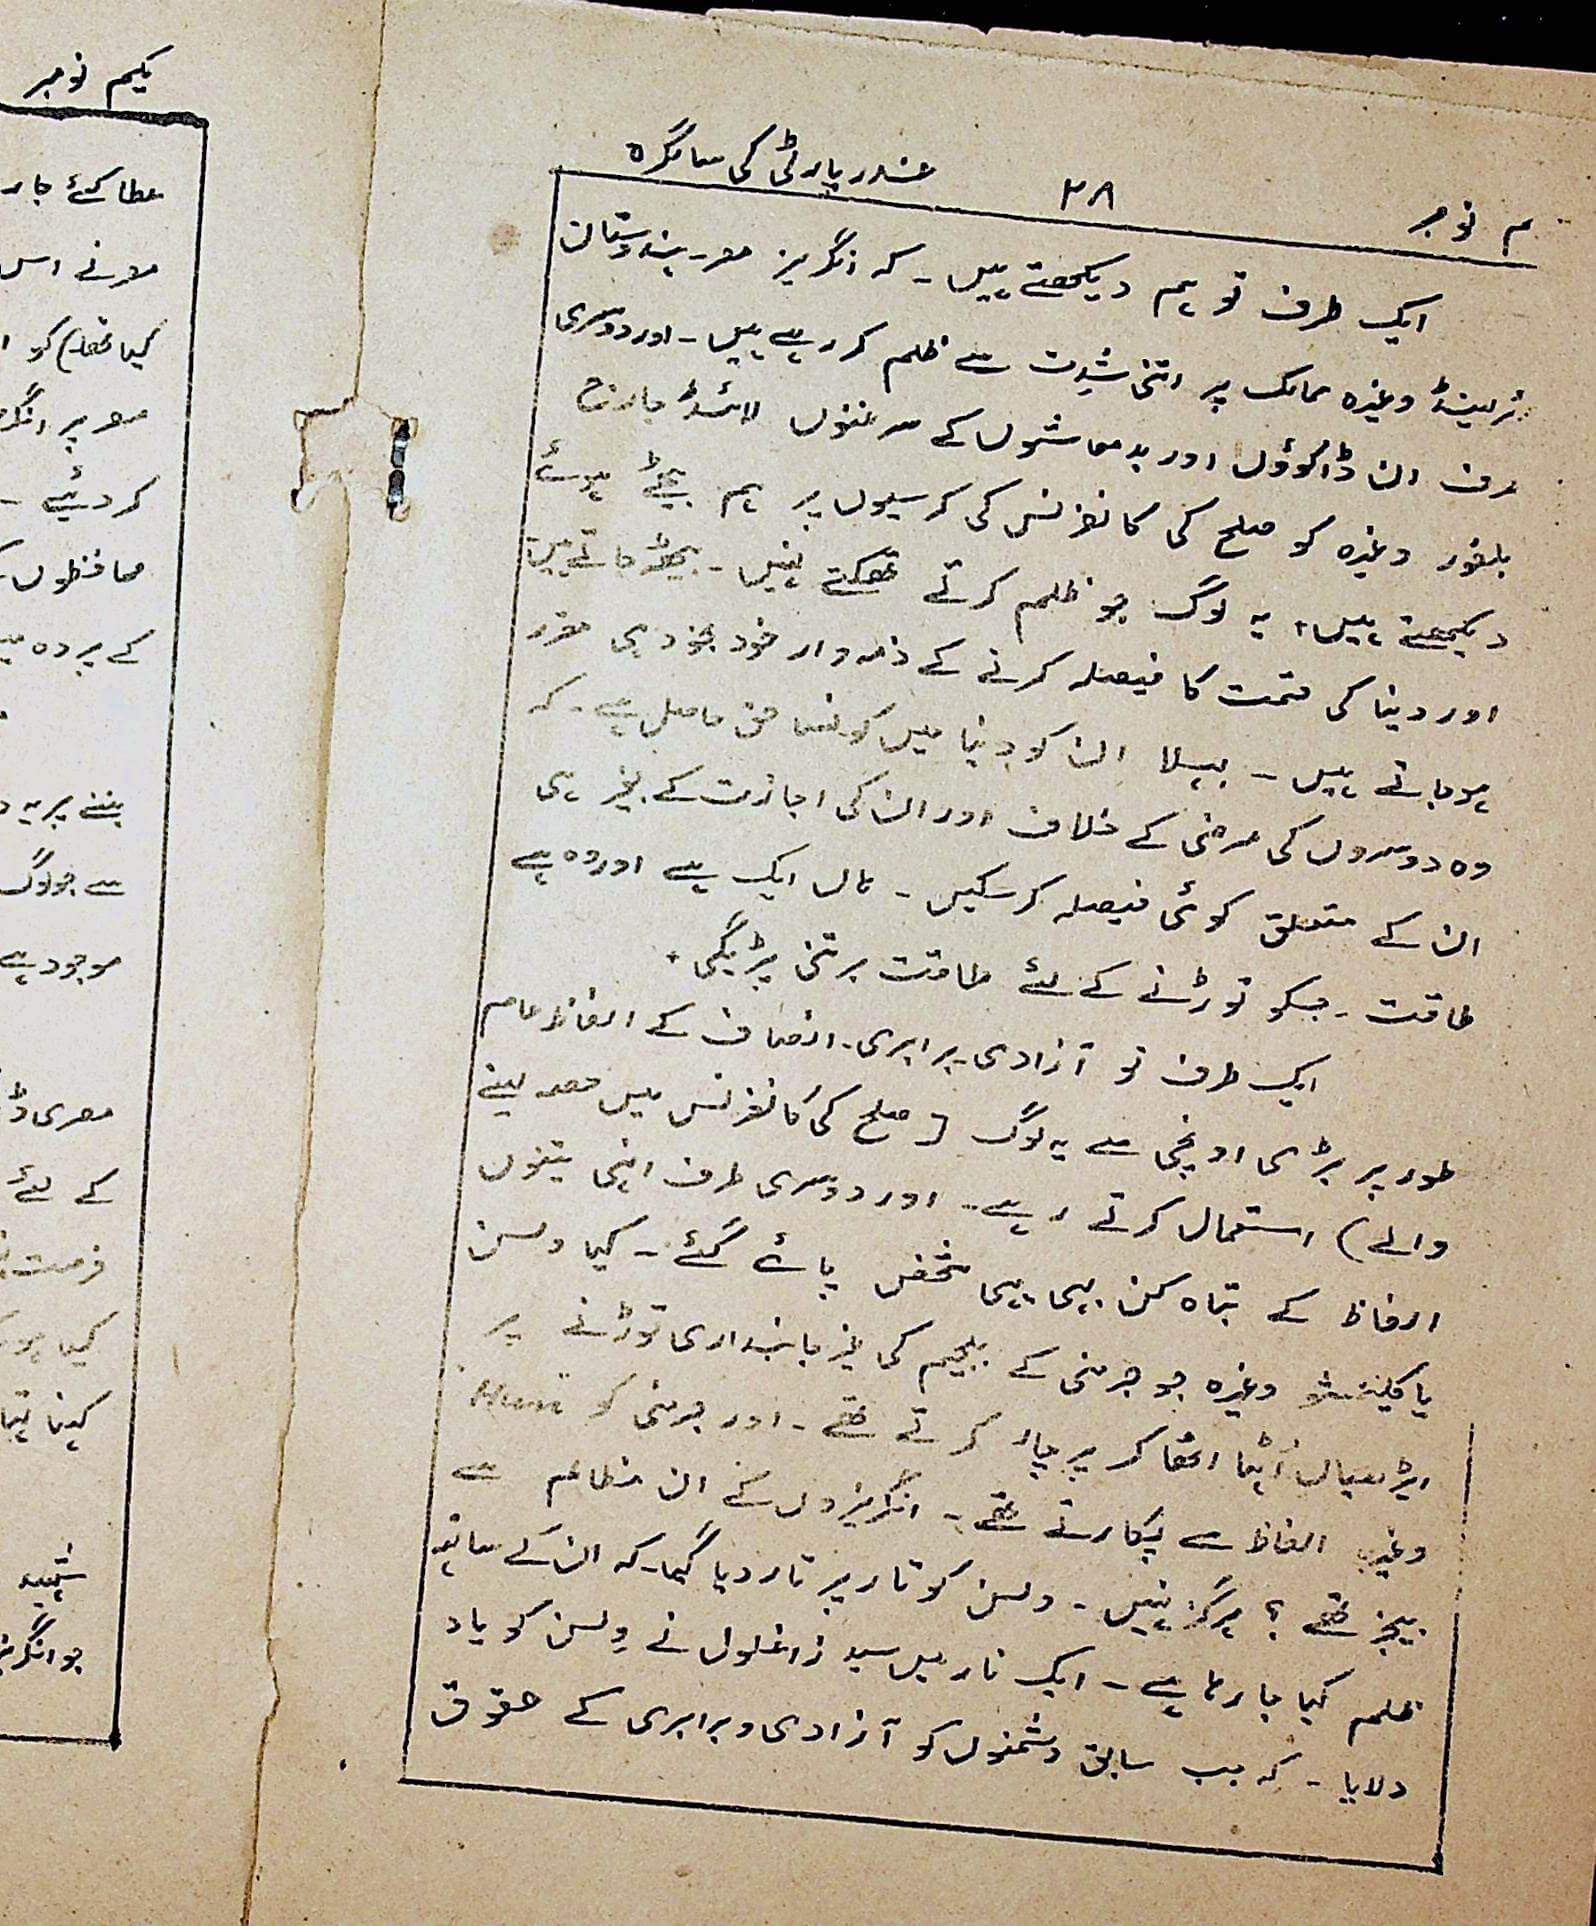 م نومبر ۲۸ غدر پارٹی کی سالگرہ
ایک طرف تو ہم دیکھتے ہیں ۔ کہ انگریز مصر ۔ ہندوستان
ئرلینڈ وغیرہ ممالک پر اتنی شدت سے ظلم کر رہے ہیں ۔ اور دوسری
رف ان ڈاکوؤں اور بدمعاشوں کے سرغنوں لائڈ جارج
بلفور وغیرہ کو صلح کی کانفرنس کی کرسیوں پر ہم بیٹھے ہوئے
دیکھتے ہیں ۔ یہ لوگ جو ظلم کرتے تھکتے نہیں ۔ بیٹھ جاتے ہیں
اور دنیا کی قسمت کا فیصلہ کرنے کے ذمہ وار خود بخود ہی مقرر
ہو جاتے ہیں ۔ بھلا ان کو دنیا میں کونسا حق حاصل ہے ۔ کہ
وہ دوسروں کی مرضی کے خلاف اور ان کی اجازت کے بغیر ہی
ان کے متعلق کوئی فیصلہ کر سکیں ۔ ہاں ایک ہے اور وہ ہے
طاقت ۔ جسکو توڑنے کے لئے طاقت برتنی پڑیگی ۔
ایک طرف تو آزادی ۔ برابری ۔ انصاف کے الفاظ عام
طور پر بڑی اونچی سے یہ لوگ [ صلح کی کانفرنس میں حصہ لینے
والے ) استعمال کرتے رہے ۔ اور دوسری طرف انہی تینوں
الفاظ کے تباہ کن یہی شخص پائے گئے ۔ کیا ولسن
یا کلینشو وغیرہ جو جرمنی کے بلجیم کی غیر جانبداری توڑنے پر
ایڑھیاں اٹھا اٹھا کر پرچار کرتے تھے ۔ اور جرمنی کو Hun
وغیرہ الفاظ سے پکارتے تھے ۔ انگریزوں کے ان مظالم سے
بیخبر تھے ؟ ہرگز نہیں ۔ ولسن کو تار پر تار دیا گیا ۔ کہ ان کے ساتھ
ظلم کیا جا رہا ہے ۔ ایک تار میں سید زاغلول نے ولسن کو یاد
دلایا ۔ کہ جب سابق دشمنوں کو آزادی و برابری کے حقوق
یکم نومبر
عطا کئے جار
نے اس
کیا تھا) کو
پر انگر
کر دئیے ۔
محافظوں
کے پردہ
بننے پر یہ
سے جو لوگ
موجود ہے
مصری
کے لئے
فرصت
کیا
کہنا
شہید
جو انگریز